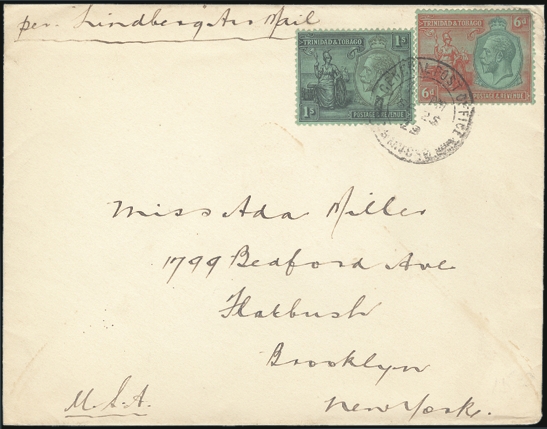 per Lindberg Air Mail
TRINIDAD & TOBAGO 1S
1S POSTAGE & REVENUE
TRINIDAD & TOBAGO 6d
6d POSTAGE & REVENUE
POST OFFICE
Miss Ada Miller
1799 Bedford Ave
Flatbush
Brooklyn
U.S.A. New York.